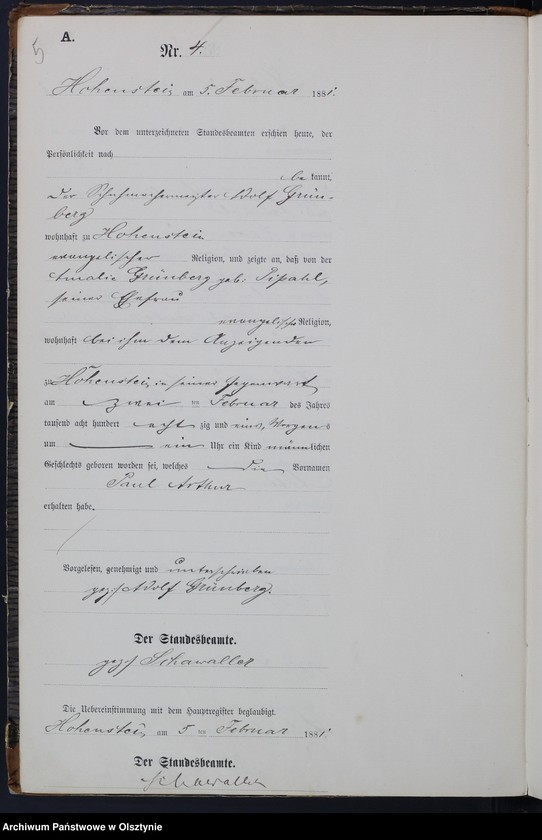 5
A.
Nr. 4.
Hohenstein am 5. Februar 1881.
Vor dem unterzeichneten Standesbeamten erschien heute, der
Persönlichkeit nach
be kannt,
der Schuhmachermeister Adolf Grün-
berg
wohnhaft zu Hohenstein
evangelischer Religion, und zeigte an, daß von der
Amalie Grünberg geb. Pipahl,
seiner Ehefrau
evangelischer Religion,
wohnhaft bei ihm dem Anzeigenden
zu Hohenstein, in seiner Gegenwart
am zwei ten Februar des Jahres
tausend acht hundert acht zig und eins, Morgens
um ein Uhr ein Kind männlichen
Geschlechts geboren worden sei, welches die Vornamen
Paul Arthur
erhalten habe.
Vorgelesen, genehmigt und unterschrieben
gez. Adolf Grünberg.
Der Standesbeamte.
gez. Schawaller
Die Uebereinstimmung mit dem Hauptregister beglaubigt.
Hohenstein, am 5 ten Februar 1881
Der Standesbeamte.
Schawaller
Archiwum Państwowe w Olsztynie